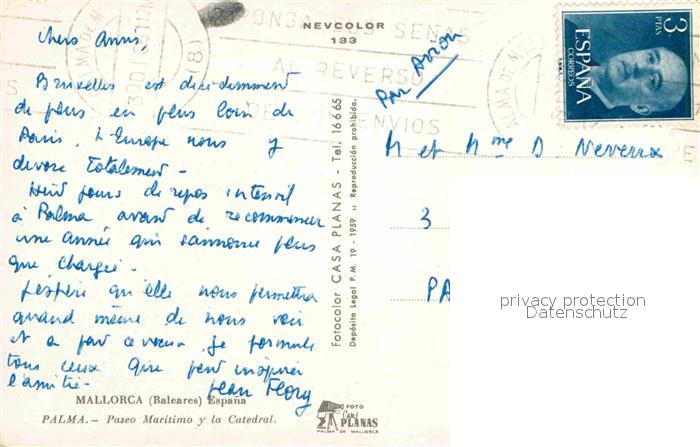 NEVCOLOR
133
PONGA
SEÑAS
AL REVERSO
DE
ENVIOS
3
PTAS
ESPAÑA
CORREOS
Chers Amis,
Bruxelles est décidemment
de plus en plus loin de
Paris. L'Europe nous y
dévore totalement -
Huit jours de repos intensif
à Palma avant de recommencer
une année qui s'annonce plus
que chargée.
J'espère qu'elle nous permettra
quand même de nous voir
et à part ce voeux je formule
tous ceux que peut inspirer
l'amitié -
Jean Flory
Par Avion
M et Mme D. Neveux
3
PA
Fotocolor CASA PLANAS - Tel. 16665
Depósito Legal P.M. 19 - 1959 :: Reproducción prohibida.
privacy protection
Datenschutz
MALLORCA (Baleares) España
PALMA. - Paseo Marítimo y la Catedral.
FOTO
Casa
PLANAS
PALMA DE MALLORCA